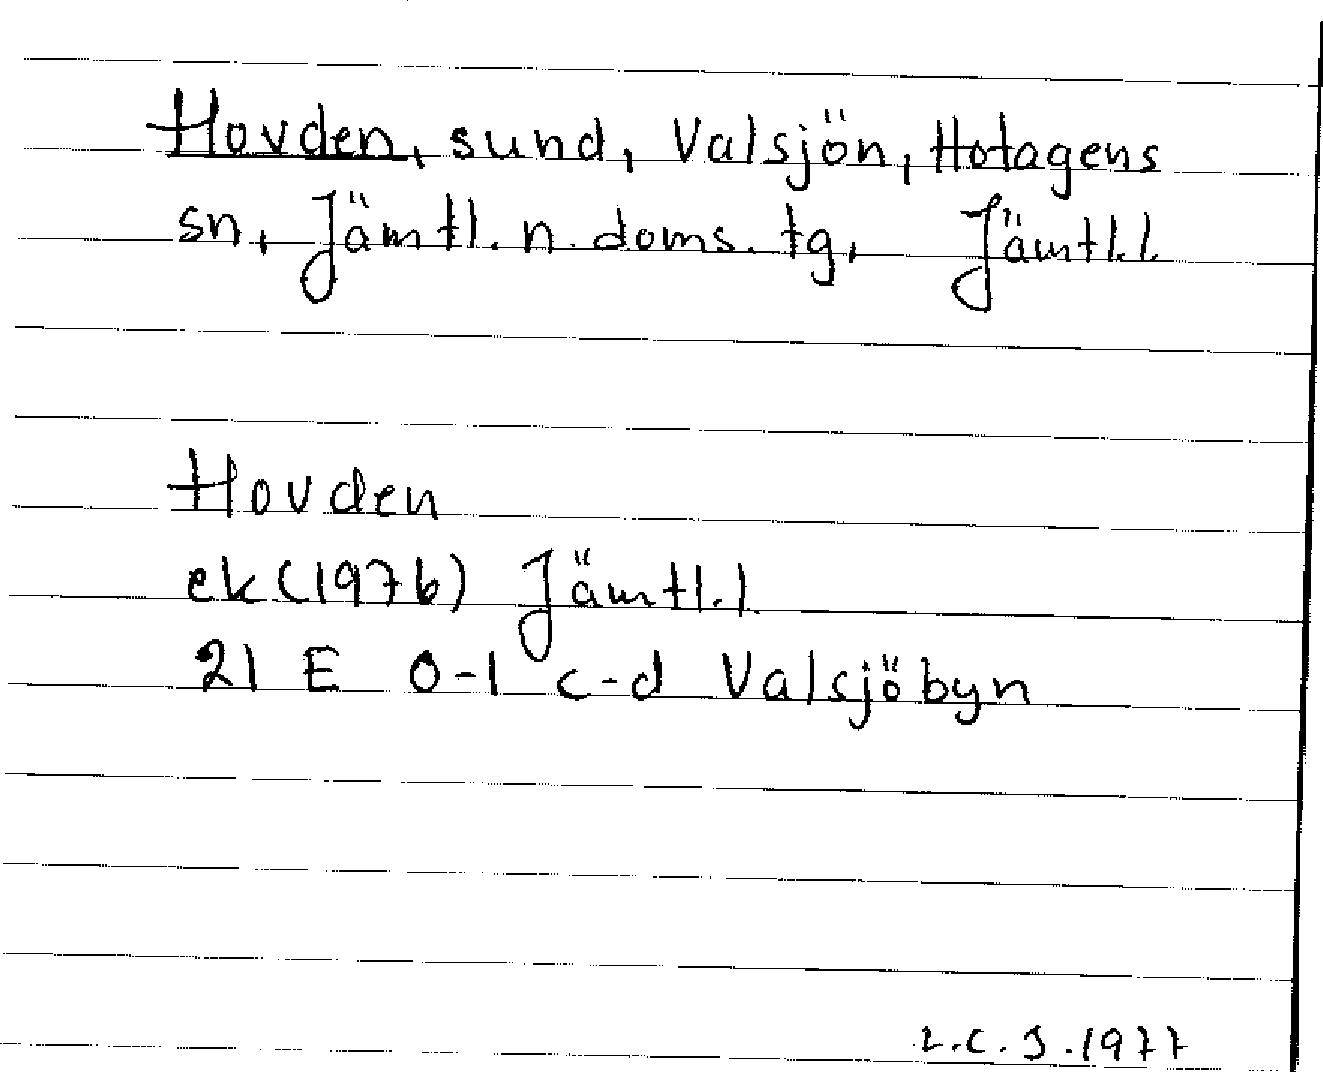 Hovden, sund, Valsjön, Hotagens
sn, Jämtl. n. doms. tg, Jämtl.l.
Hovden
ek(1976) Jämtl.l.
21 E 0-1 c-d Valsjöbyn
L.C.J.1977